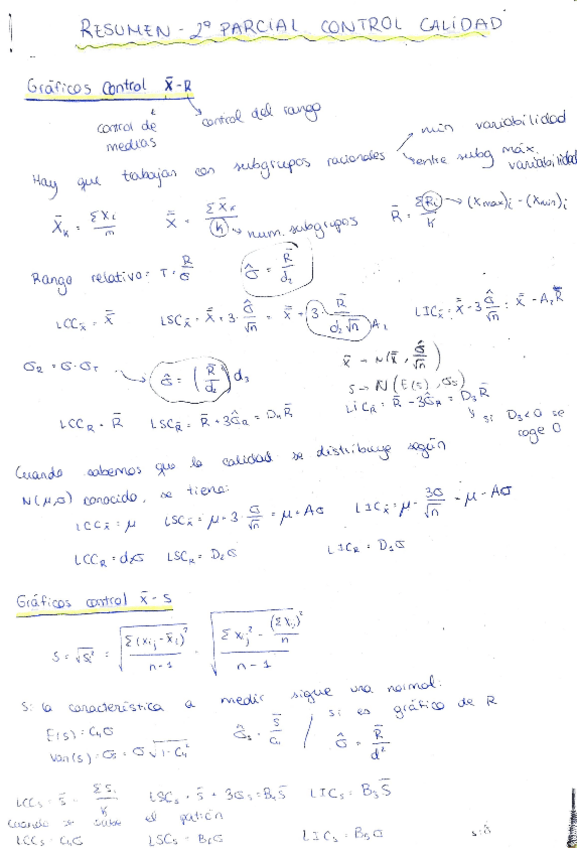 RESUMEN - 2º PARCIAL CONTROL CALIDAD
Gráficos control X̄-R
control de medias
control del rango
Hay que trabajar con subgrupos racionales
min variabilidad
entre subg máx. variabilidad
X̄ₖ = ΣXᵢ/n   X̿ = ΣX̄ₖ/k → num. subgrupos   R̄ = ΣRᵢ/k → (Xmax)ᵢ - (Xmin)ᵢ
Rango relativo: T = R/σ   σ̂ = R̄/d₂
LCCx̄ = X̿   LSCx̄ = X̿ + 3·σ̂/√n = X̿ + 3·R̄/(d₂√n) A₂   LICx̄ = X̿ - 3σ̂/√n = X̿ - A₂R̄
X̄ → N(X̿, σ̂/√n)
σR = σ·σT → σ̂ = (R̄/d₂)d₃
S → N(E(s), σs)
LCCR = R̄   LSCR = R̄ + 3σ̂R = D₄R̄   LICR = R̄ - 3σ̂R = D₃R̄
si D₃<0 se coge 0
Cuando sabemos que la calidad se distribuye según
N(μ,σ) conocido, se tiene:
LCCx̄ = μ   LSCx̄ = μ + 3·σ/√n = μ + Aσ   LICx̄ = μ - 3σ/√n = μ - Aσ
LCCR = d₂σ   LSCR = D₂σ   LICR = D₁σ
Gráficos control x̄-s
S = √S² = √(Σ(xᵢⱼ - x̄ᵢ)²/(n-1)) = √((Σxᵢⱼ² - (Σxᵢⱼ)²/n)/(n-1))
Si la característica a medir sigue una normal:
E(s) = C₄σ   σ̂s = s̄/C₄ / si es gráfico de R
Var(s) = σs = σ√(1-C₄²)   σ̂ = R̄/d²
LCCs = s̄ = Σsᵢ/k   LSCs = s̄ + 3σs = B₄s̄   LICs = B₃s̄
cuando se sabe el patrón
LCCs = C₄σ   LSCs = B₆σ   LICs = B₅σ